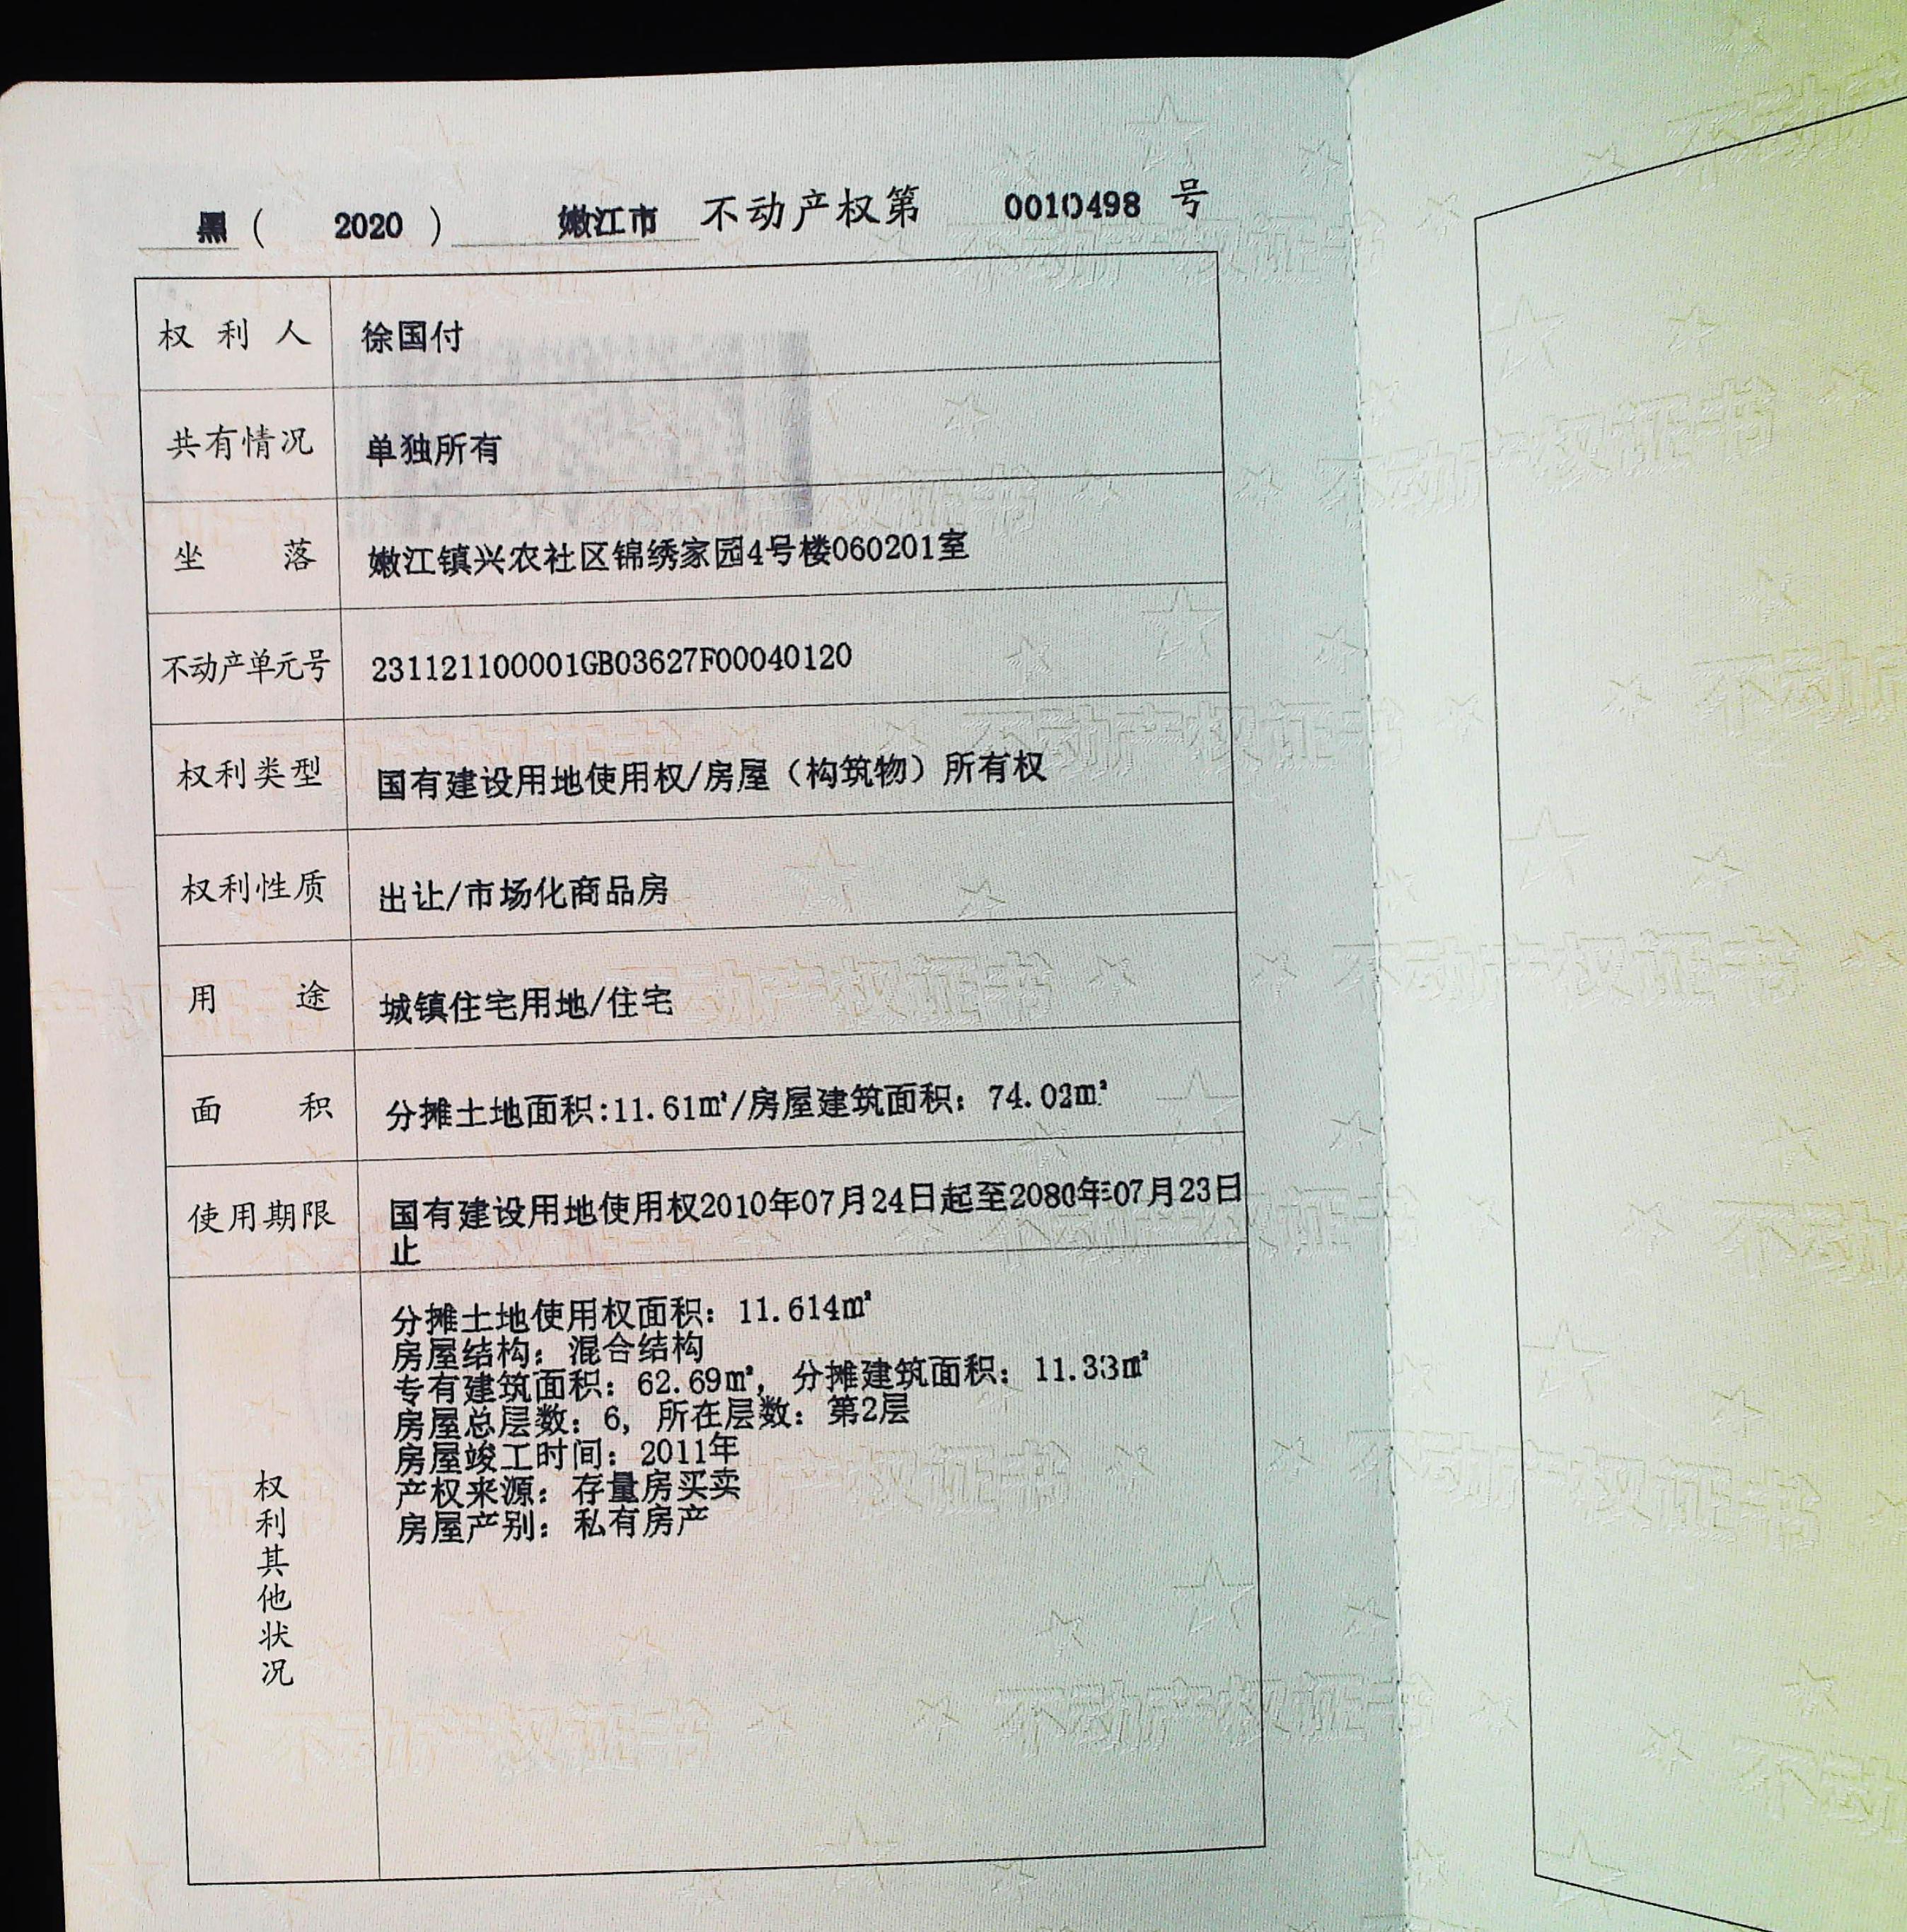 黑（ 2020 ） 嫩江市 不动产权第 0010498 号
权利人 徐国付
共有情况 单独所有
坐落 嫩江镇兴农社区锦绣家园4号楼060201室
不动产单元号 231121100001GB03627F00040120
权利类型 国有建设用地使用权/房屋（构筑物）所有权
权利性质 出让/市场化商品房
用途 城镇住宅用地/住宅
面积 分摊土地面积:11.61㎡/房屋建筑面积：74.02㎡
使用期限 国有建设用地使用权2010年07月24日起至2080年07月23日
止
权利其他状况
分摊土地使用权面积：11.614㎡
房屋结构：混合结构
专有建筑面积：62.69㎡，分摊建筑面积：11.33㎡
房屋总层数：6，所在层数：第2层
房屋竣工时间：2011年
产权来源：存量房买卖
房屋产别：私有房产